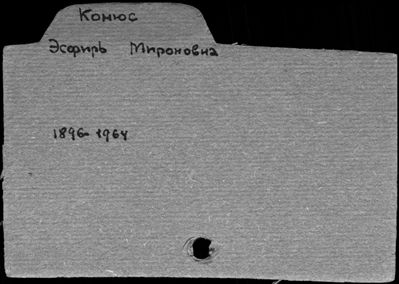 Конюс
Эсфирь Мироновна
1896-1964